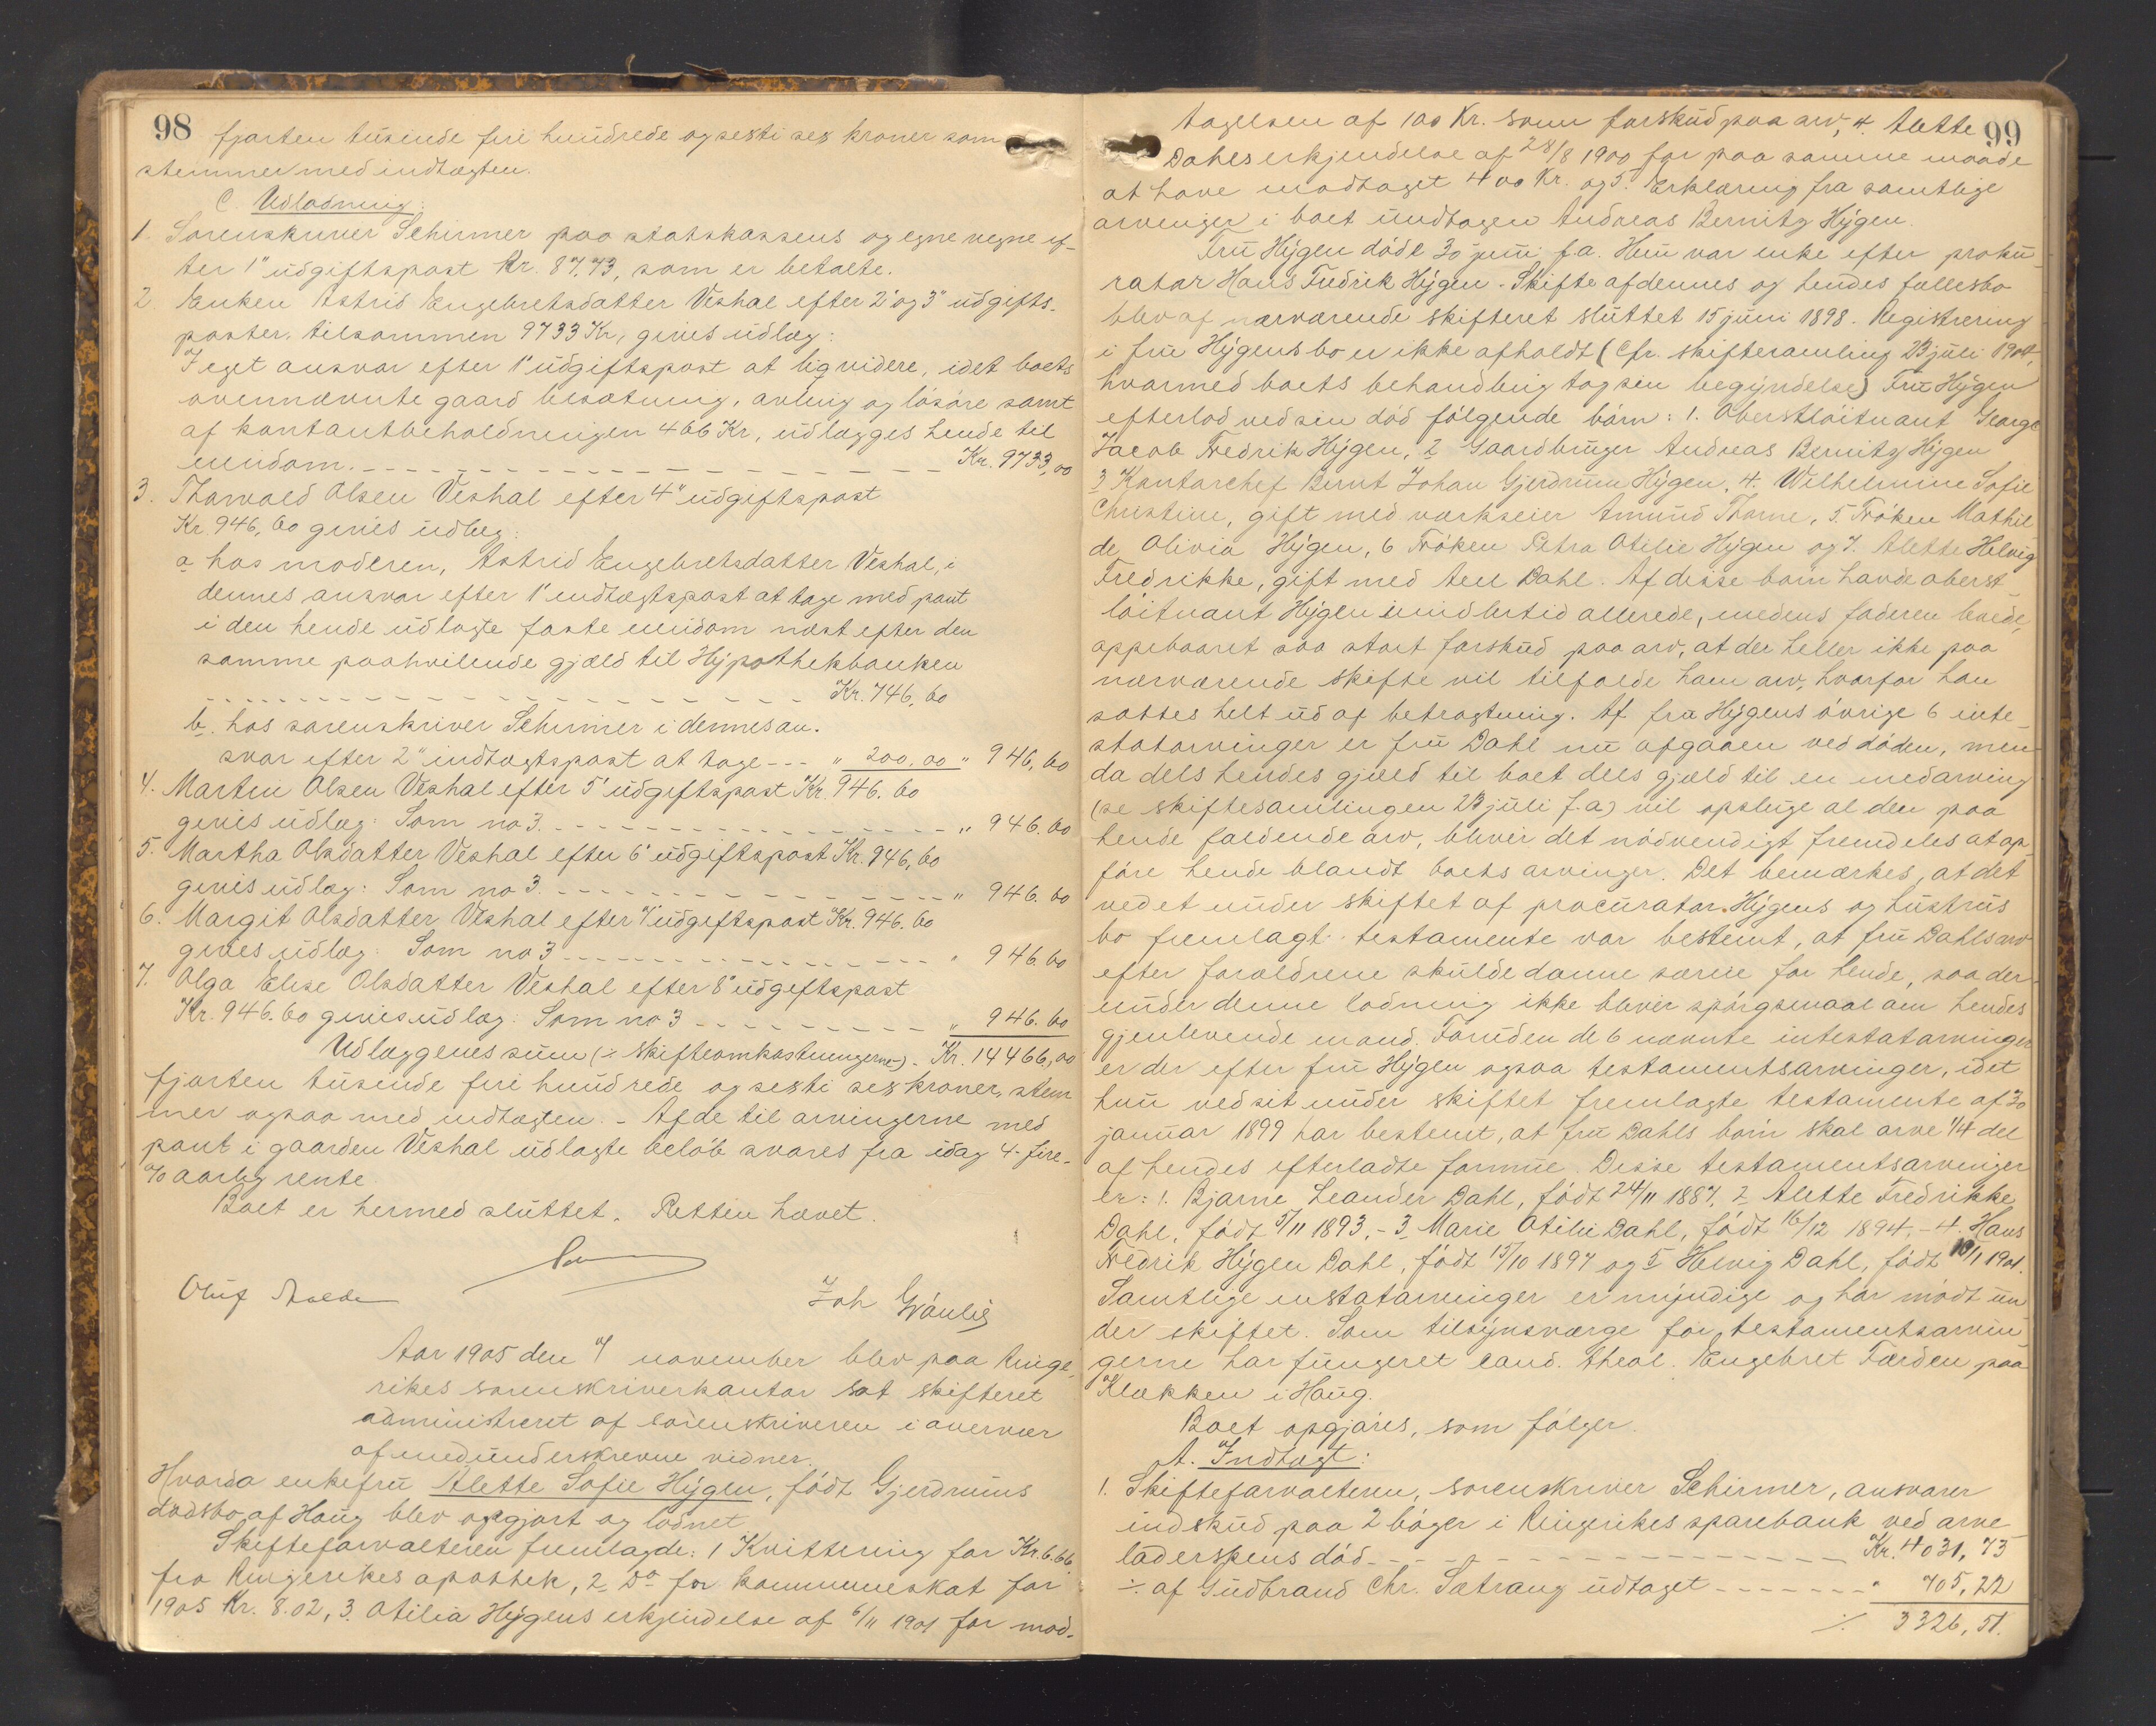 98
fjorten tusinde fire hundrede og sesti ses kroner som
stemmer med indtægten.
C. Udlodning:
1. Sorenskriver Schirmer paa statskassens og egne vegne ef-
ter 1ste udgiftspost Kr. 87,73, som er betalte.
2. Enken Astrid Engebretsdatter Veshal efter 2' og 3" udgifts-
poster, tilsammen 9733 Kr, gives udlæg:
I eget ansvar efter 1" udgiftspost at liqvidere, idet boets
ovennævnte gaard besætning, avling og løsøre samt
af kontantbeholdningen 466 Kr, udlægges hende til
eiendom. Kr. 9733,00
3. Thorvald Olsen Veshal efter 4" udgiftspost
Kr. 946,60 gives udlæg:
a hos moderen, Astrid Engebretsdatter Veshal, i
dennes ansvar efter 1" indtægtspost at tage med pant
i den hende udlagte faste eiendom næst efter den
samme paahvilende gjæld til Hypothekbanken
Kr. 746,60
b. hos sorenskriver Schirmer i dennes an-
svar efter 2" indtægtspost at tage --- " 200,00 " 946,60
4. Martin Olsen Veshal efter 5' udgiftspost Kr. 946.60
gives udlæg: Som no 3. " 946.60
5. Martha Olsdatter Veshal efter 6' udgiftspost Kr. 946,60
gives udlæg: Som no 3. " 946.60
6. Margit Olsdatter Veshal efter 7' udgiftspost Kr. 946.60
gives udlæg: Som no 3 " 946.60
7. Olga Elise Olsdatter Veshal efter 8" udgiftspost
Kr. 946.60 gives udlæg: Som no 3 " 946.60
Udlæggenes sum (÷ skifteomkostningerne) - Kr. 14466,00
fjorten tusinde fire hundrede og sesti ses kroner, stem
mer ogsaa med indtægten. - Af de til arvingerne med
pant i gaarden Veshal udlagte beløb svares fra idag 4- fire-
% aarlig rente.
Boet er hermed sluttet. Retten hævet.
Oluf
Joh
Aar 1905 den 7 november blev paa Ringe-
rikes sorenskriverkontor sat skifteret
administreret af sorenskriveren i overvær
af medunderskrevne vidner.
Hvorda enkefru Alette Sofie Hýgen, født Gjerdrums
dødsbo af Haug blev opgjort og lodnet
Skifteforvalteren fremlagde: 1 Kvittering for Kr. 6.66
fra Ringerikes apothek, 2 Do for kommuneskat for
1905 Kr. 8.02, 3. Otilia Hýgens erkjendelse af 6/11 1901 for mod-
99
tagelsen af 100 Kr. som forskud paa arv, 4. Alette
Dahls erkjendelse af 28/8 1900 for paa samme maade
at have modtaget 400 Kr. og 5. Erklæring fra samtlige
arvinger i boet undtagen Andreas Bernitz Hýgen.
Fru Hýgen døde 30 juni f.a. Hun var enke efter proku-
rator Hans Fredrik Hýgen. Skifte af dennes og hendes fællesbo
blev af nærværende skifteret sluttet 15 juni 1898. Registrering
i fru Hýgens bo er ikke afholdt (Cfr. skiftesamling 23 juli 1904,
hvormed boets behandling tog sin begyndelse) Fru Hýgen
efterlod ved sin død følgende børn: 1. Oberstløitnant George
Jacob Fredrik Hýgen, 2 Gaardbruger Andreas Bernitz Hýgen
3 Kontorchef Bernt Johan Gjerdrum Hýgen, 4. Wilhelmine Sofie
Christine, gift med værkseier Amund Thorne, 5. Frøken Mathil
de Olivia Hýgen, 6 Frøken Petra Otilie Hýgen og 7. Alette Helvig
Fredrikke, gift med Axel Dahl. Af disse børn havde oberst-
løitnant Hýgen imidlertid allerede, medens faderen levede,
oppebaaret saa stort forskud paa arv, at der heller ikke paa
nærværende skifte vil tilfalde ham arv, hvorfor han
sættes helt ud af betragtning. Af fru Hýgens øvrige 6 inte-
statarvinger er fru Dahl nu afgaaen ved døden, men
da dels hendes gjæld til boet dels gjæld til en medarving
(se skiftesamlingen 23 juli f.a) vil opsluge al den paa
hende faldende arv, bliver det nødvendigt fremdeles at op-
føre hende blandt boets arvinger. Det bemærkes, at det
ved et under skiftet af procurator Hýgens og hustrus
bo fremlagt testamente var bestemt, at fru Dahls arv
efter forældrene skulde danne særeie for hende, saa der-
under denne lodning ikke bliver spørgsmaal om hendes
gjenlevende mand. Foruden de 6 nævnte intestatarvinger
er der efter fru Hýgen ogsaa testamentsarvinger, idet
hun ved sit under skiftet fremlagte testamente af 30
januar 1899 har bestemt, at fru Dahls børn skal arve 1/4 del
af hendes efterladte formue. Disse testamentsarvinger
er: 1. Bjarne Leander Dahl, født 24/11 1887, 2 Alette Fredrikke
Dahl, født 5/11 1893, - 3 Marie Otilie Dahl, født 16/12 1894, - 4. Hans
Fredrik Hýgen Dahl, født 15/10 1897 og 5 Helvig Dahl, født 10/1 1901.
Samtlige instatarvinger er myndige og har mødt un
der skiftet. Som tilsynsværge for testamentsarvin
gerne har fungeret cand. theol. Engebret Færden paa
Klækken i Haug.
Boet opgjøres, som følger.
A. Indtægt:
1. Skifteforvalteren, sorenskriver Schirmer, ansvarer
indskud paa 2 bøger i Ringerikes sparebank ved arve
laderskens død Kr. 4031,73
÷ af Gudbrand Chr. Sætrang udtaget " 705,22
% 3326,51.